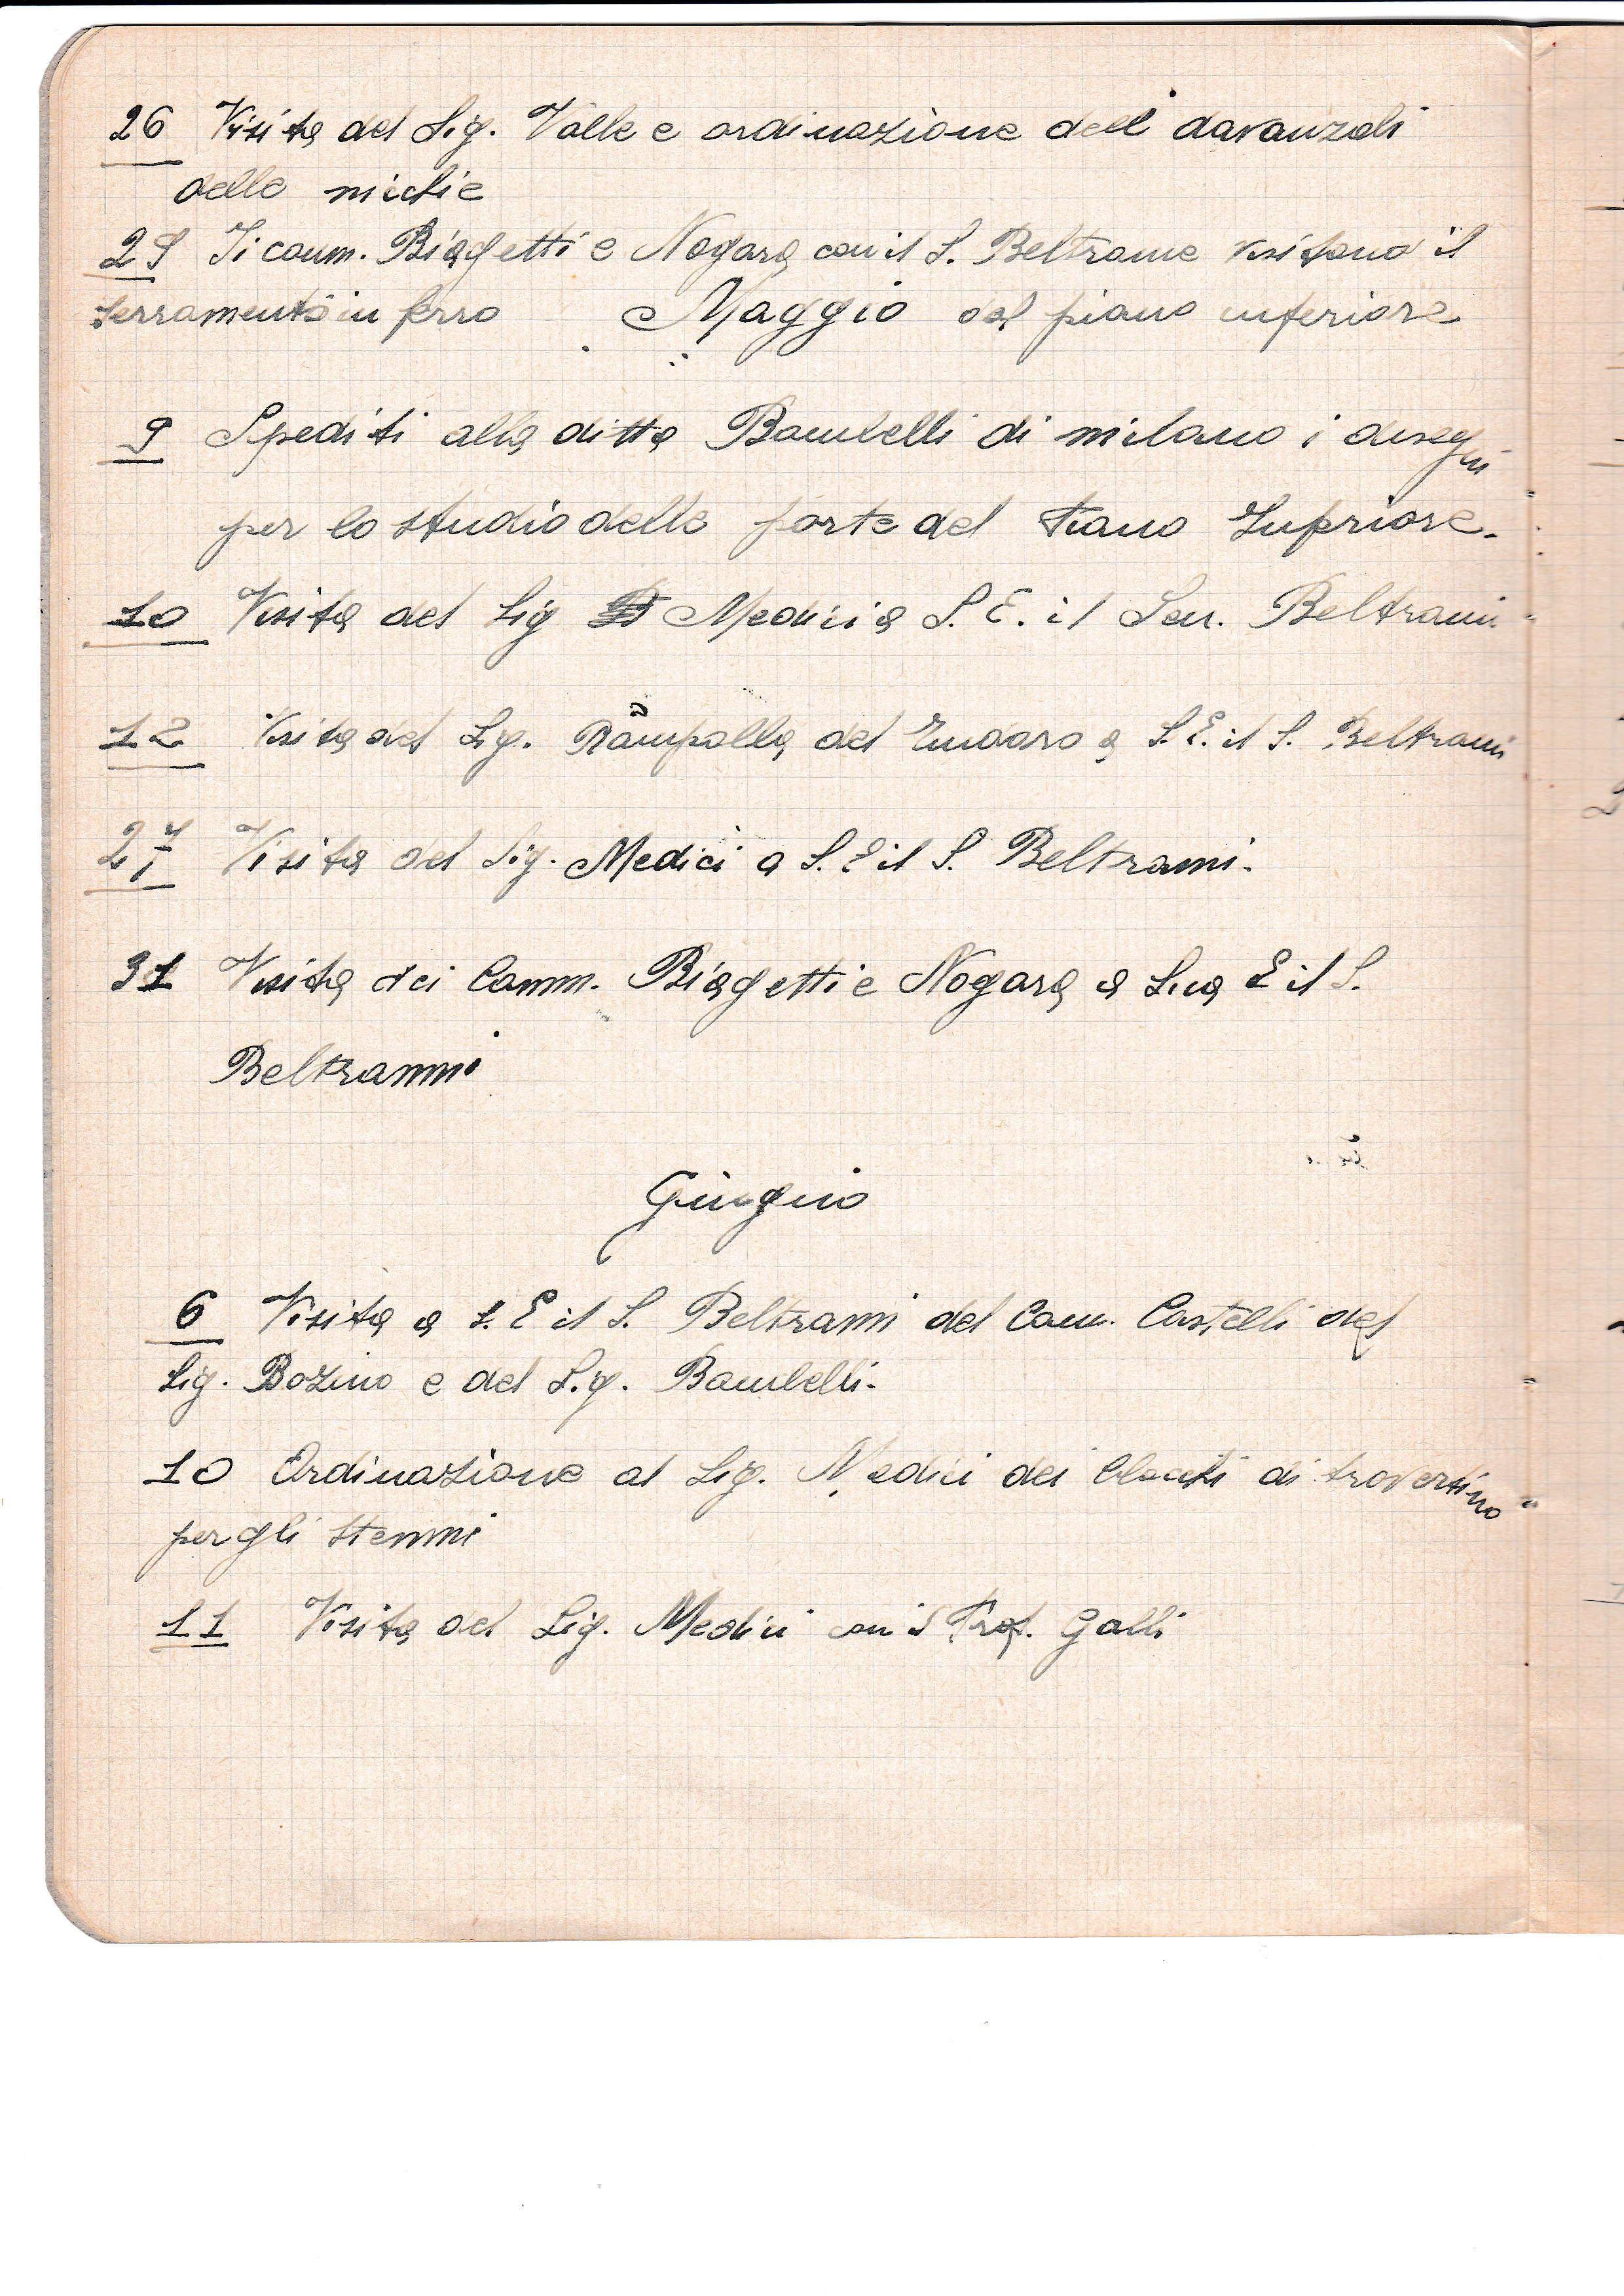 26 Visita del Sig. Valle e ordinazione deei davanzali
delle nicchie
29 I comm. Biagetti e Nogara con il S. Beltrame visitano il
serramento in ferro Maggio del piano inferiore
9 Spediti alla ditta Bambelli di milano i disegni
per lo studio delle porte del Piano Inferiore.
10 Visita del Sig Medici a S. E. il Sen. Beltrami
12 Visita del Sig. Rampolla del Tindaro a S. E. il S. Beltrami
27 Visita del Sig. Medici a S. E il S. Beltrami.
31 Visita dei Comm. Biagetti e Nogara a Sua E il S.
Beltrammi
Giugnio
6 Visita a S. E il S. Beltrami del Com. Castelli del
Sig. Bozino e del Sig. Bambelli.
10 Ordinazione al Sig. Medici dei blocchi di travertino
per gli stemmi
11 Visita del Sig. Medici con il Prof. Galli